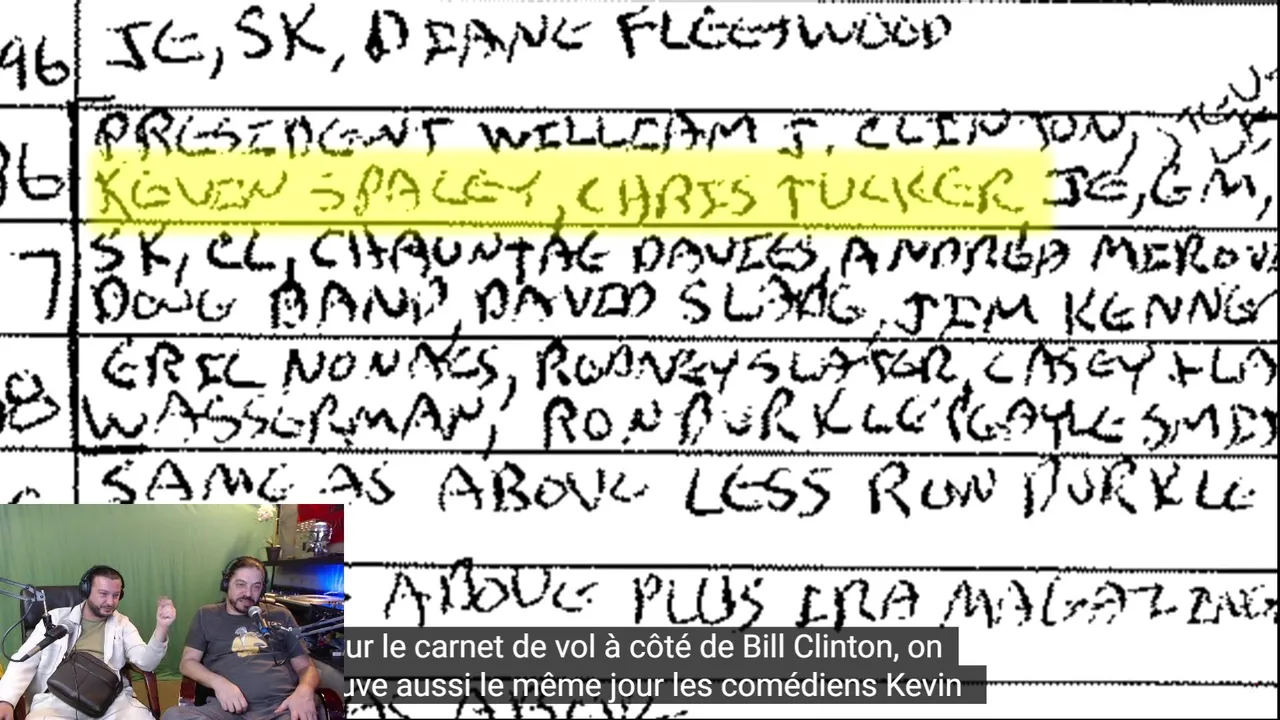 96 JE, SK, DIANE FLEETWOOD
PRESIDENT WILLIAM J. CLINTON,
86 KEVIN SPACEY, CHRIS TUCKER, JE, GM,
7 SK, CL, CHAUNTAE DAVIES, ANDREA
DOUG BAND, DAVID SLANG, JIM
8 ERIC NONACS, RODNEY SLATER, CASEY +
WASSERMAN, RON BURKLE, GAYLE
SAME AS ABOVE LESS RON BURKLE
ABOVE PLUS IRA
ur le carnet de vol à côté de Bill Clinton, on
uve aussi le même jour les comédiens Kevin
AS ABOVE